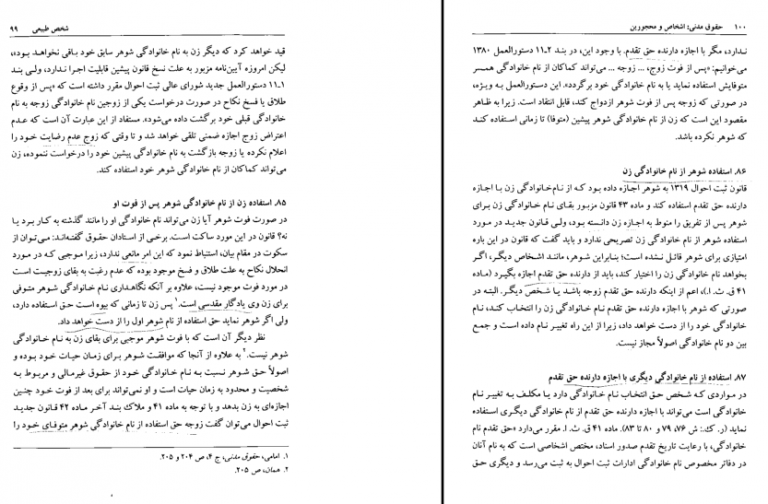 شخص طبیعی ۹۹
قید خواهد کرد که دیگر زن به نام خانوادگی شوهر سابق خود باقی نخواهد بود»،
لیکن امروزه آیین‌نامه مزبور به علت نسخ قانون پیشین قابلیت اجرا ندارد، ولی بند
۱۱ـ۱ دستورالعمل جدید شورای عالی ثبت احوال مقرر داشته است که «پس از وقوع
طلاق یا فسخ نکاح در صورت درخواست یکی از زوجین نام خانوادگی زوجه به نام
خانوادگی قبلی خود برگشت داده می‌شود». مستفاد از این عبارت آن است که عدم
اعتراض زوج اجازه ضمنی تلقی خواهد شد و تا وقتی که زوج عدم رضایت خود را
اعلام نکرده یا زوجه بازگشت به نام خانوادگی پیشین خود را درخواست ننموده، زن
می‌تواند کماکان از نام خانوادگی شوهر خود استفاده کند.
۸۵. استفاده زن از نام خانوادگی شوهر پس از فوت او
در صورت فوت شوهر آیا زن می‌تواند نام خانوادگی او را مانند گذشته به کار برد یا
نه؟ قانون در این مورد ساکت است. برخی از استادان حقوق گفته‌اند: می‌توان از
سکوت در مقام بیان، استنباط نمود که این امر مانعی ندارد، زیرا موجبی که در مورد
انحلال نکاح به علت طلاق و فسخ موجود بوده که عدم رغبت به بقای زوجیت است
در مورد فوت موجود نیست، علاوه بر آنکه نگاهداری نام خانوادگی شوهر متوفی
برای زن وی یادگار مقدسی است.۱ پس زن تا زمانی که بیوه است حق استفاده دارد،
ولی اگر شوهر نماید حق استفاده از نام شوهر اول را از دست خواهد داد.
نظر دیگر آن است که با فوت شوهر موجبی برای بقای زن به نام خانوادگی
شوهر نیست.۲ به علاوه از آنجا که موافقت شوهر برای زمان حیات خود بوده و
اصولاً حق شوهر نسبت به نام خانوادگی خود از حقوق غیرمالی و مربوط به
شخصیت و محدود به زمان حیات است و او نمی‌تواند برای بعد از فوت خود چنین
اجازه‌ای به زن بدهد و با توجه به ماده ۴۱ و ملاک بند آخر ماده ۴۲ قانون جدید
ثبت احوال می‌توان گفت زوجه حق استفاده از نام خانوادگی شوهر متوفای خود را
۱. امامی، حقوق مدنی، ج ۴، ص ۲۰۴ و ۲۰۵.
۲. همان، ص ۲۰۵.
۱۰۰ حقوق مدنی: اشخاص و محجورین
ندارد، مگر با اجازه دارنده حق تقدم. با وجود این، در بند ۲ـ۱۱ دستورالعمل ۱۳۸۰
می‌خوانیم: «پس از فوت زوج، ... زوجه ... می‌تواند کماکان از نام خانوادگی همسر
متوفایش استفاده نماید یا به نام خانوادگی خود برگردد». این دستورالعمل به ویژه،
در صورتی که زوجه پس از فوت شوهر ازدواج کند، قابل انتقاد است. زیرا به ظاهر
مقصود این است که زن از نام خانوادگی شوهر پیشین (متوفا) تا زمانی استفاده کند
که شوهر نکرده باشد.
۸۶. استفاده شوهر از نام خانوادگی زن
قانون ثبت احوال ۱۳۱۹ به شوهر اجازه داده بود که از نام‌خانوادگی زن با اجازه
دارنده حق تقدم استفاده کند و ماده ۴۳ قانون مزبور بقای نام خانوادگی زن برای
شوهر پس از تفریق را منوط به اجازه زن دانسته بود، ولی قانون جدید در مورد
استفاده شوهر از نام خانوادگی زن تصریحی ندارد و باید گفت که قانون در این باره
امتیازی برای شوهر قائل نشده است؛ بنابراین شوهر، مانند اشخاص دیگر، اگر
بخواهد نام خانوادگی زن را اختیار کند، باید از دارنده حق تقدم اجازه بگیرد (ماده
۴۱ ق. ث. ا.)، اعم از اینکه دارنده حق تقدم زوجه باشد یا شخص دیگر. البته در
صورتی که شوهر با اجازه دارنده حق تقدم نام خانوادگی زن را انتخاب کند، نام
خانوادگی خود را از دست خواهد داد، زیرا از این راه تغییر نام داده است و جمع
بین دو نام خانوادگی اصولاً مجاز نیست.
۸۷. استفاده از نام خانوادگی دیگری با اجازه دارنده حق تقدم
در مواردی که شخص حق انتخاب نام خانوادگی دارد یا مکلف به تغییر نام
خانوادگی است می‌تواند با اجازه دارنده حق تقدم از نام خانوادگی دیگری استفاده
نماید (ر. ک: ش ۷۶، ۷۹ و ۸۰ تا ۸۳). ماده ۴۱ ق. ث. ا. مقرر می‌دارد: «حق تقدم نام
خانوادگی، با رعایت تاریخ تقدم صدور اسناد، مختص اشخاصی است که به نام آنان
در دفاتر مخصوص نام خانوادگی ادارات ثبت احوال به ثبت می‌رسد و دیگری حق